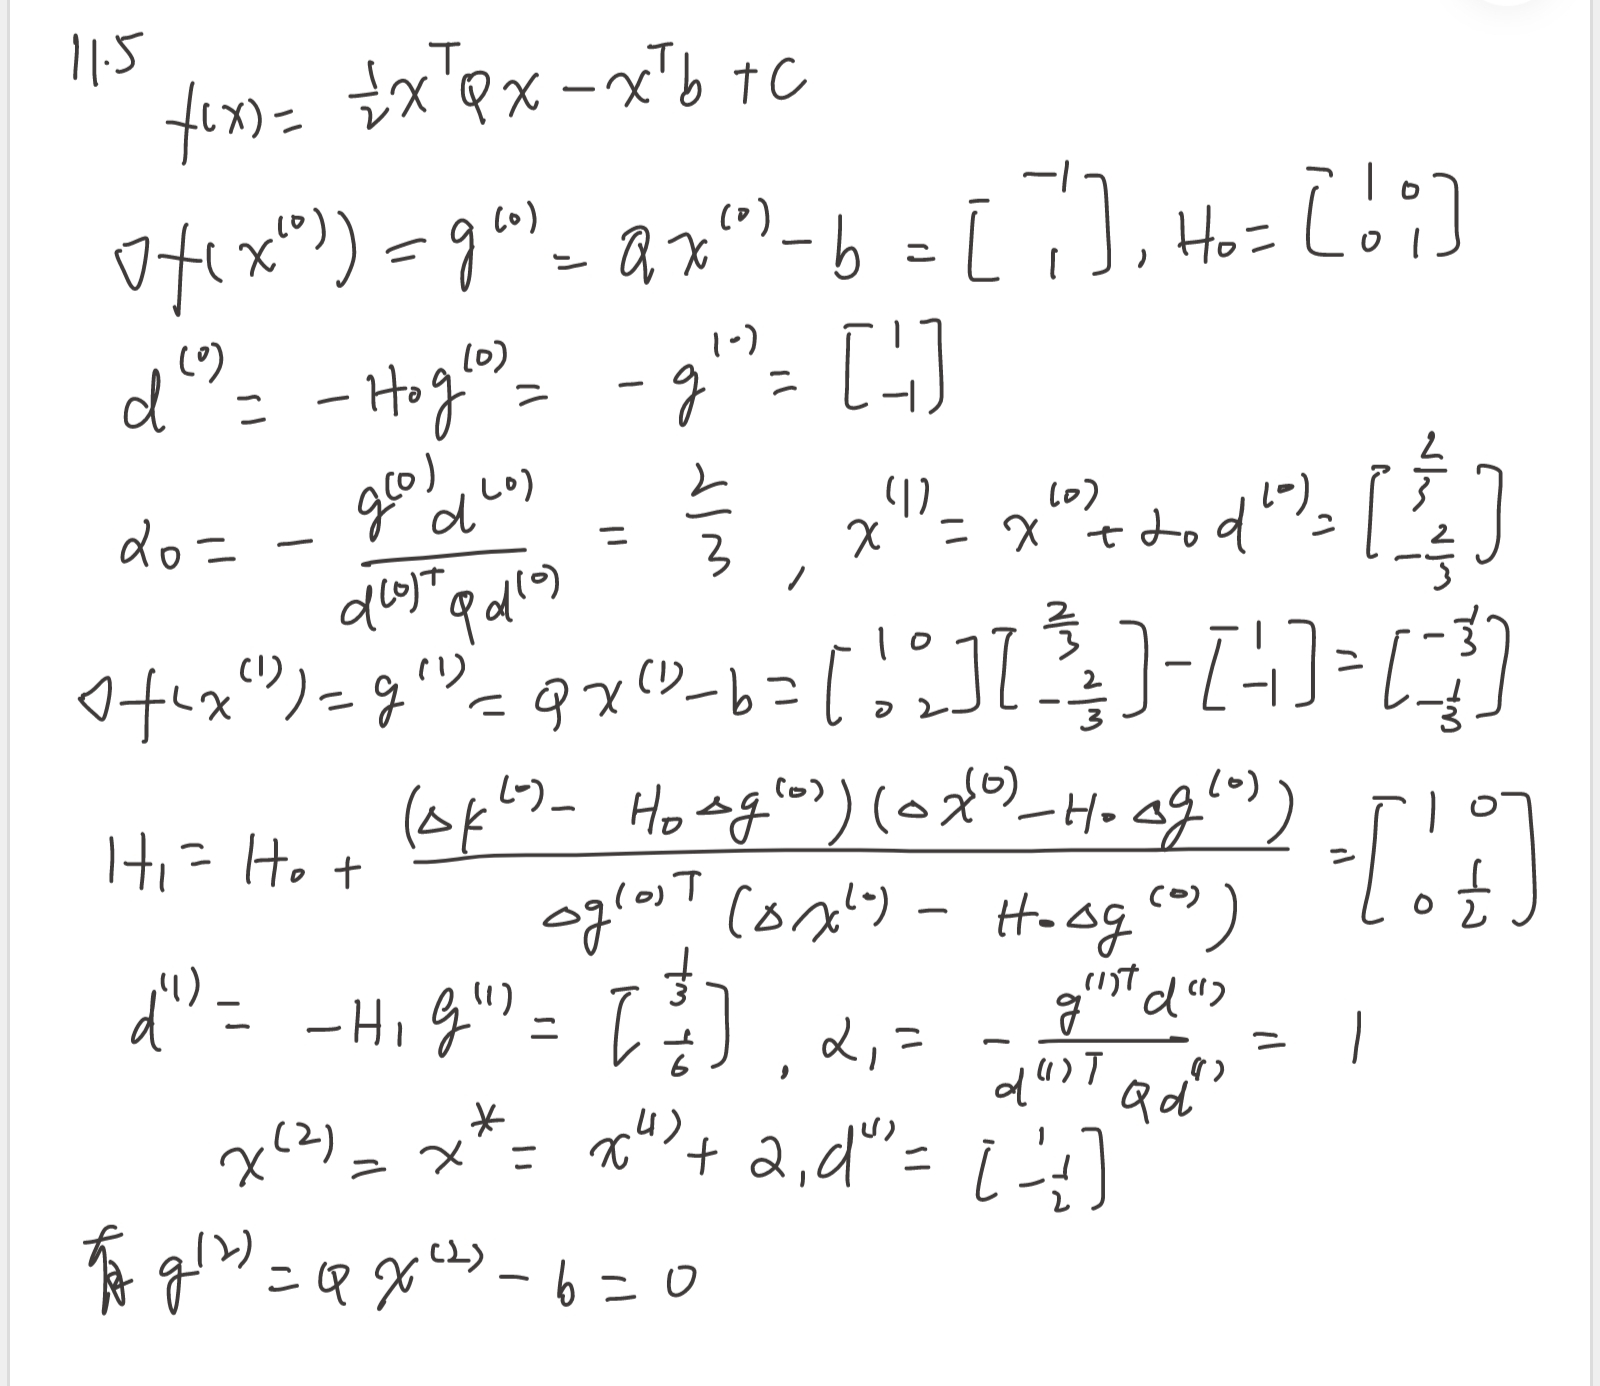 11.5
f(x) = 1/2 x^T Q x - x^T b + C
∇f(x^(0)) = g^(0) = Q x^(0) - b = [-1; 1], H0 = [1 0; 0 1]
d^(0) = - H0 g^(0) = - g^(0) = [1; -1]
α0 = - g^(0) d^(0) / d^(0)T Q d^(0) = 2/3, x^(1) = x^(0) + α0 d^(0) = [2/3; -2/3]
∇f(x^(1)) = g^(1) = Q x^(1) - b = [1 0; 0 2][2/3; -2/3] - [1; -1] = [-1/3; -1/3]
H1 = H0 + (Δx^(0) - H0 Δg^(0))(Δx^(0) - H0 Δg^(0)) / Δg^(0)T (Δx^(0) - H0 Δg^(0)) = [1 0; 0 1/2]
d^(1) = - H1 g^(1) = [1/3; 1/6], α1 = - g^(1)T d^(1) / d^(1)T Q d^(1) = 1
x^(2) = x* = x^(1) + α1 d^(1) = [1; -1/2]
g^(2) = Q x^(2) - b = 0